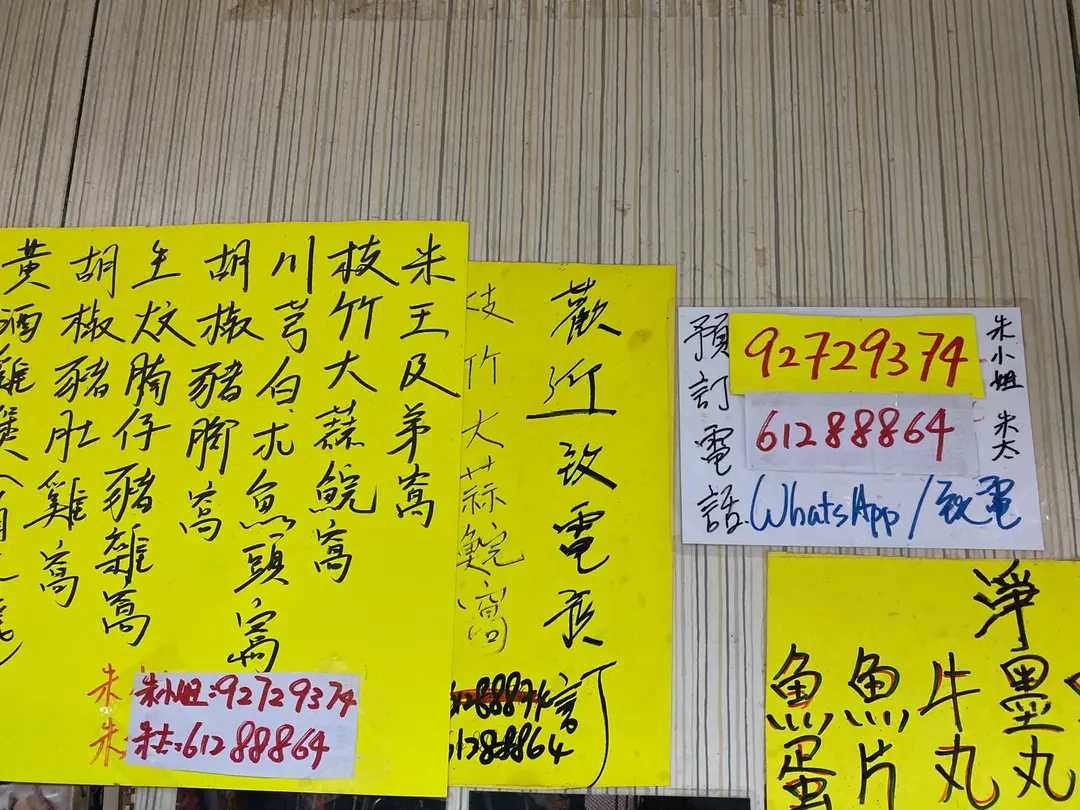 朱王及弟窩
枝竹大蒜鯇窩
川芎白朮魚頭窩
胡椒豬脚窩
生炆腩仔豬雜窩
胡椒豬肚雞窩
黃酒雞煲
朱小姐:92729374
朱太:61288864
歡迎致電預訂
枝竹大蒜鯇窩
61288864
預訂電話
92729374
61288864
WhatsApp/致電
朱小姐
朱太
淨
墨丸
牛丸
魚片
魚蛋